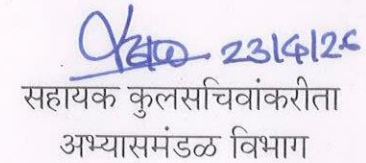 23/4/26
सहायक कुलसचिवांकरीता
अभ्यासमंडळ विभाग